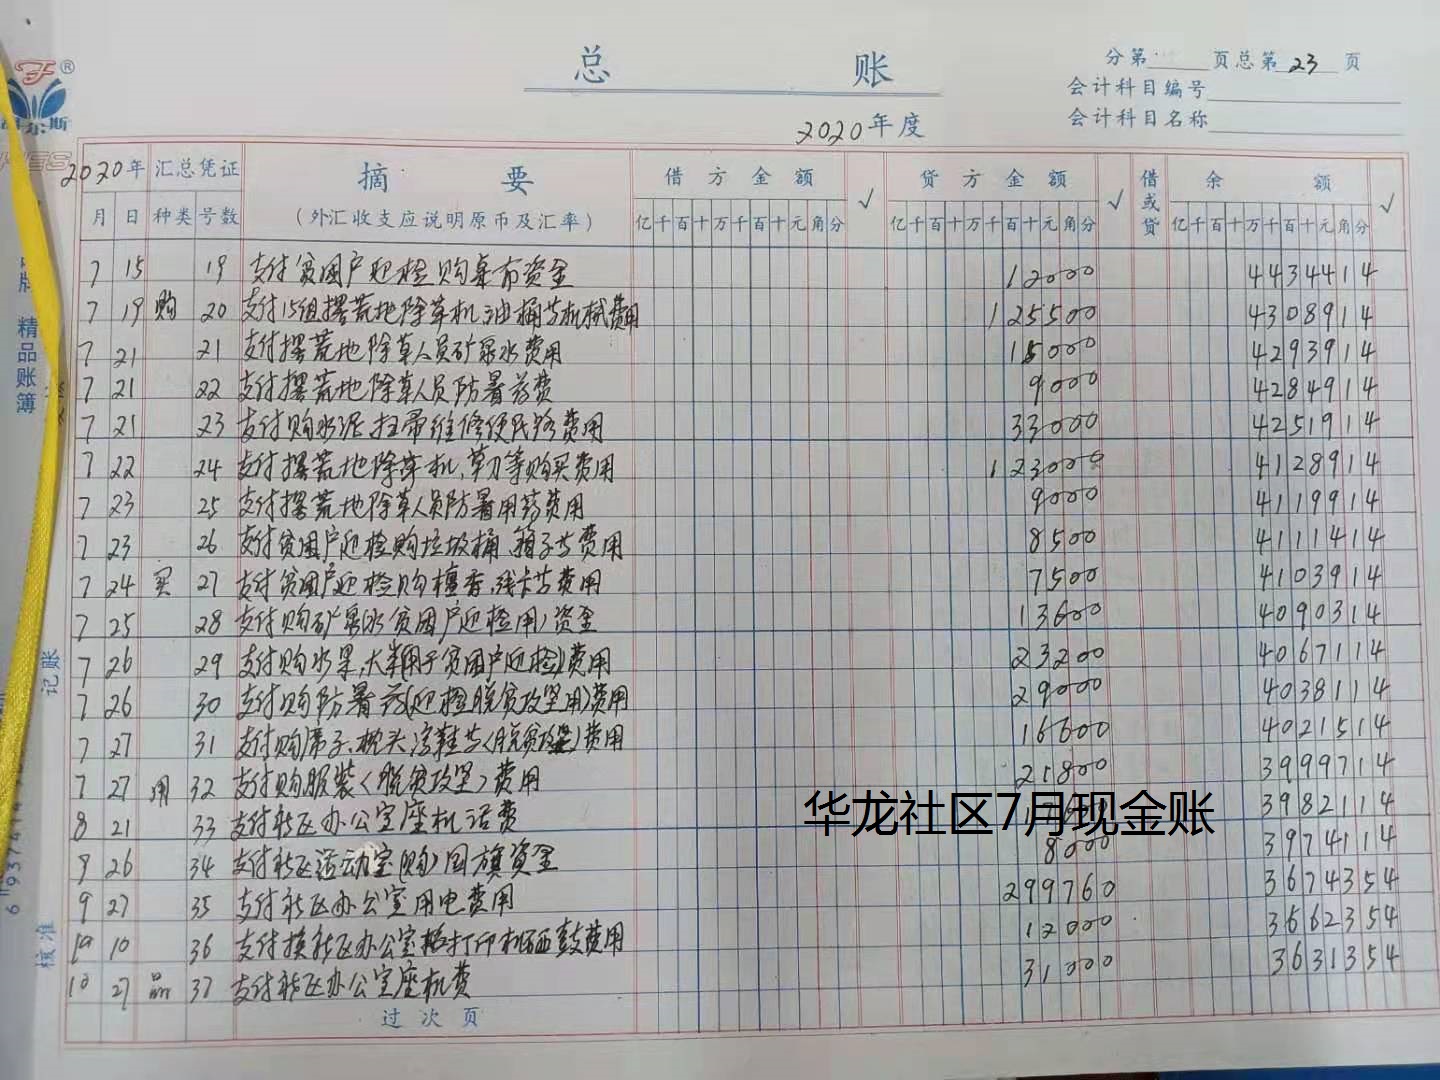 总 账
分第 页总第 23 页
会计科目编号
会计科目名称
2020年度
2020年 汇总凭证 摘 要 借方金额 √ 贷方金额 √ 借或贷 余 额 √
月 日 种类 号数 (外汇收支应说明原币及汇率) 亿千百十万千百十元角分 亿千百十万千百十元角分 亿千百十万千百十元角分
7 15 19 支付贫困户迎检购桌布资金 12000 4434414
7 19 购 20 支付15组撂荒地除草机油桶等机械费用 125500 4308914
7 21 21 支付撂荒地除草人员矿泉水费用 15000 4293914
7 21 22 支付撂荒地除草人员防暑药费 9000 4284914
7 21 23 支付购水泥扫帚维修便民路费用 33000 4251914
7 22 24 支付撂荒地除草机,草刀等购买费用 123000 4128914
7 23 25 支付撂荒地除草人员防暑用药费用 9000 4119914
7 23 26 支付贫困户迎检购垃圾桶、箱子等费用 8500 4111414
7 24 买 27 支付贫困户迎检购檀香,线卡等费用 7500 4103914
7 25 28 支付购矿泉水贫困户迎检用)资金 13600 4090314
7 26 29 支付购水果,大米用于贫困户迎检)费用 23200 4067114
7 26 30 支付购防暑药(迎检脱贫攻坚用)费用 29000 4038114
7 27 31 支付购席子、枕头凉鞋等(脱贫攻坚)费用 16600 4021514
7 27 用 32 支付购服装(脱贫攻坚)费用 21800 3999714
8 21 33 支付社区办公室座机话费 3982114
华龙社区7月现金账
9 26 34 支付社区活动室(购)国旗资金 8000 3974114
9 27 35 支付社区办公室用电费用 299760 3674354
10 10 36 支付换社区办公室打印机硒鼓费用 12000 3662354
10 27 品 37 支付社区办公室座机费 31000 3631354
过次页
尔斯
精品账簿
记账
核准